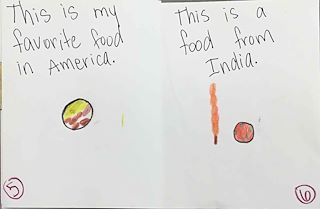 This is my
favorite food
in America.
5
This is a
food from
India.
6